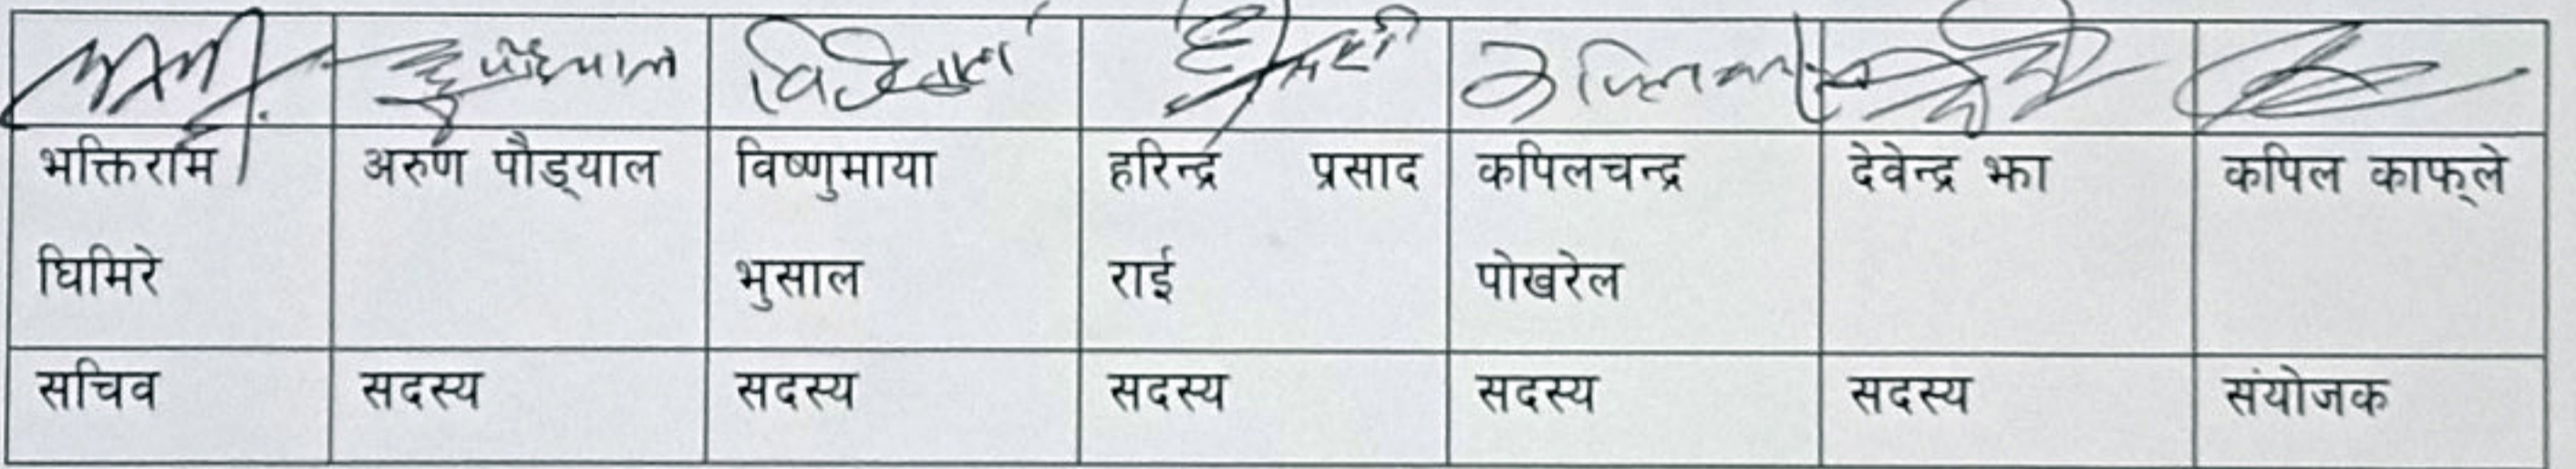 भक्तिराम घिमिरे
अरुण पौड्याल
विष्णुमाया भुसाल
हरिन्द्र प्रसाद राई
कपिलचन्द्र पोखरेल
देवेन्द्र झा
कपिल काफ्ले
सचिव
सदस्य
सदस्य
सदस्य
सदस्य
सदस्य
संयोजक